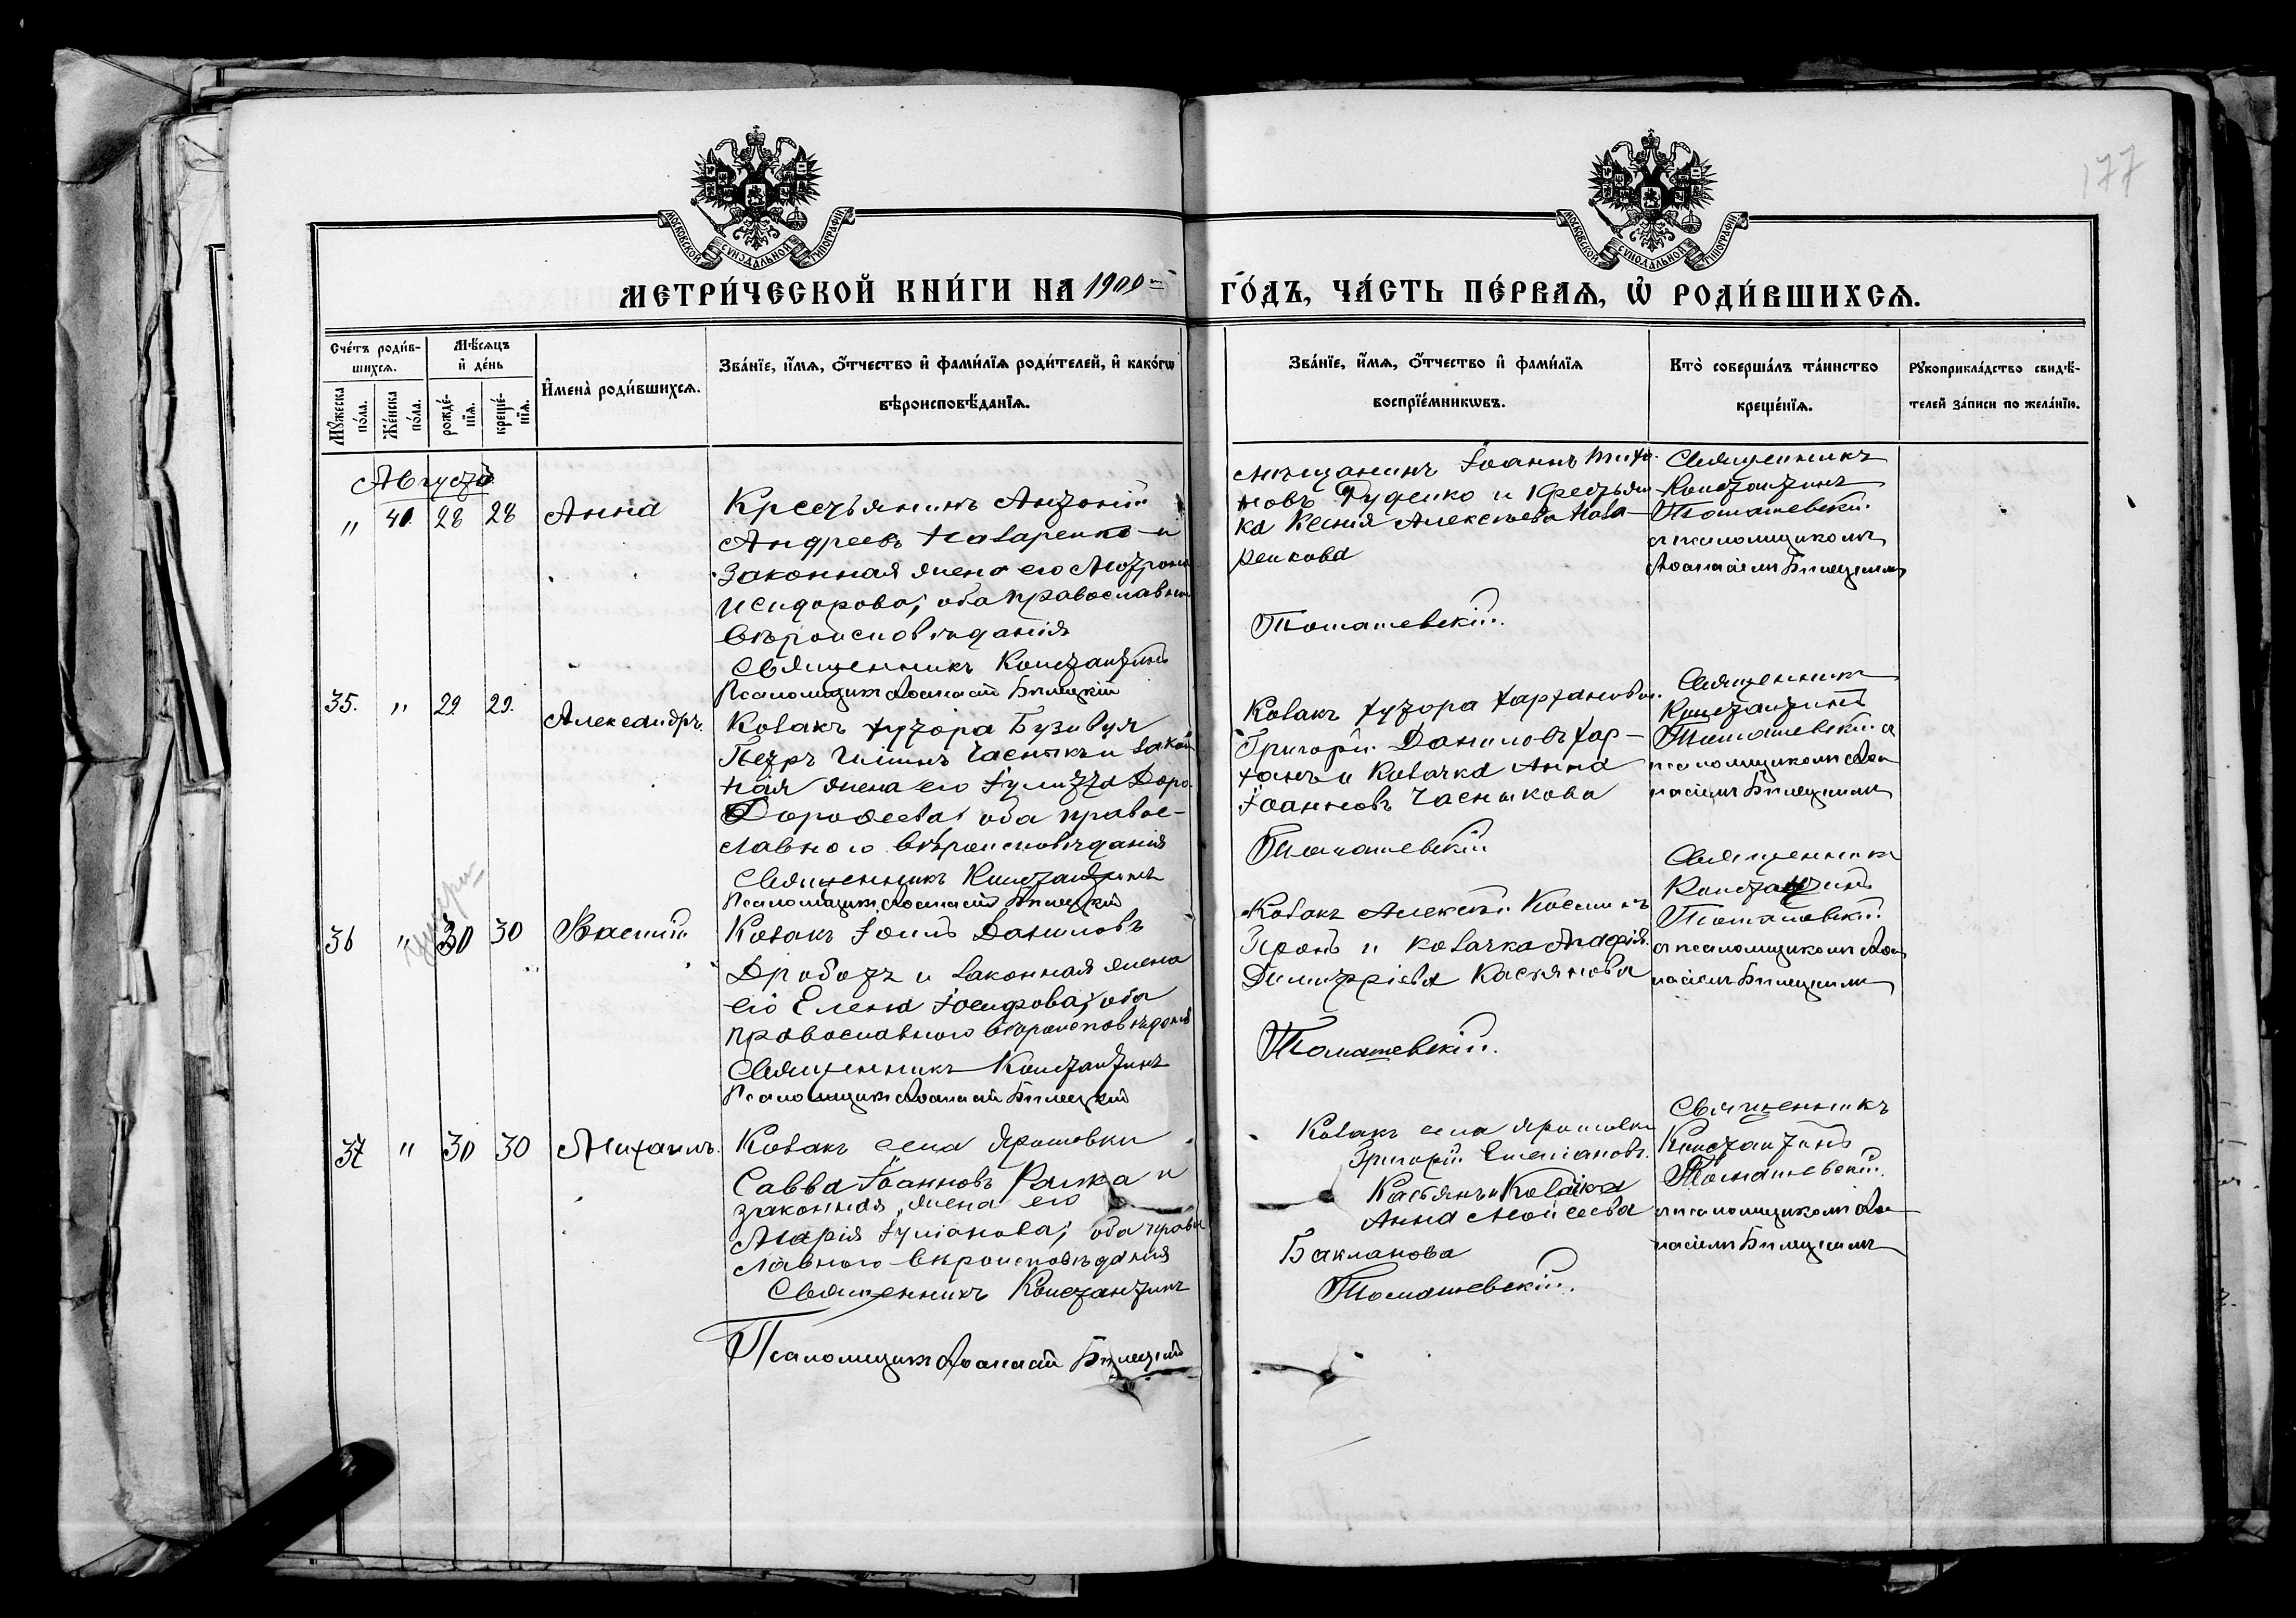 177
МОСКОВСКОЙ СѴНОДАЛЬНОЙ ТИПОГРАФІИ
МОСКОВСКОЙ СѴНОДАЛЬНОЙ ТИПОГРАФІИ
МЕТРИ́ЧЕСКОЙ КНИ́ГИ НА 1900 ГО́ДЪ, ЧА́СТЬ ПЕ́РВАѦ, Ѡ҆ РОДИ́ВШИХСѦ.
Сче́тъ роди́в-
шихсѧ.
Мꙋ́жеска по́ла.
Же́нска по́ла.
Мѣ́сѧцъ
и҆ де́нь
рожде́-
нїѧ.
креще́-
нїѧ.
И҆мена̀ роди́вшихсѧ.
Зва́нїе, и҆́мѧ, ѻ҆́тчество и҆ фами́лїѧ роди́телей, и҆ како́гѡ
вѣроисповѣ́данїѧ.
Зва́нїе, и҆́мѧ, ѻ҆́тчество и҆ фами́лїѧ
воспрїе́мникѡвъ.
Кто̀ соверша́лъ та́инство
креще́нїѧ.
Рꙋкоприкла́дство свидѣ́-
телей за́писи по жела́нїю.
Августъ
" 40. 28 28 Анна
Крестьянинъ Антоній
Андреевъ Назаренко и
законная жена его Мотрона
Исидорова, оба православнаго
вѣроисповѣданія
Священникъ Константинъ
Псаломщикъ Аѳанасій Билецкій
Мѣщанинъ Іоаннъ
новъ Руденко и крестьян
ка Ксенія Алексѣева Наза-
ренкова
Томашевскій.
Священникъ
Константинъ
Томашевскій
съ псаломщикомъ
Аѳанасіемъ Билецкимъ
35. " 29 29. Александръ.
Козакъ хутора Бузивуя
Петръ Часныкъ и закон
ная жена его Іулитта Доро
Дороѳеева, оба правос-
лавного вѣроисповѣданія
Священникъ Константинъ
Псаломщикъ Аѳанасій Билецкій
Козакъ хутора
Григорій Даниловъ Хар-
ханъ и козачка Анна
Іоаннова Часныкова
Томашевскій
Священникъ
Константинъ
Томашевскій съ
псаломщикомъ Аѳа
насіемъ Билецкимъ
36 " 30 30 Василій
Козакъ Іоиль Даниловъ
Дроботъ и законная жена
его Елена Іосифова, оба
православного вѣроисповѣданія
Священникъ Константинъ
Псаломщикъ Аѳанасій Билецкій
Козакъ Алексѣй Косминъ
и козачка Агафія
Димитріева Касьянова
Томашевскій.
Священникъ
Константинъ
Томашевскій
съ псаломщикомъ Аѳа
насіемъ Билецкимъ
37 " 30 30 Михаилъ.
Козакъ села Ярошовки
Савва Іоанновъ и
законная жена его
Марія Іуліанова, оба правос
лавного вѣроисповѣданія
Священникъ Константинъ
Псаломщикъ Аѳанасій Билецкій
Козакъ села Ярошовки
Григорій Емеліановъ
Касьянъ и козачка
Анна Моисеева
Бакланова
Томашевскій.
Священникъ
Константинъ
Томашевскій
съ псаломщикомъ Аѳа
насіемъ Билецкимъ